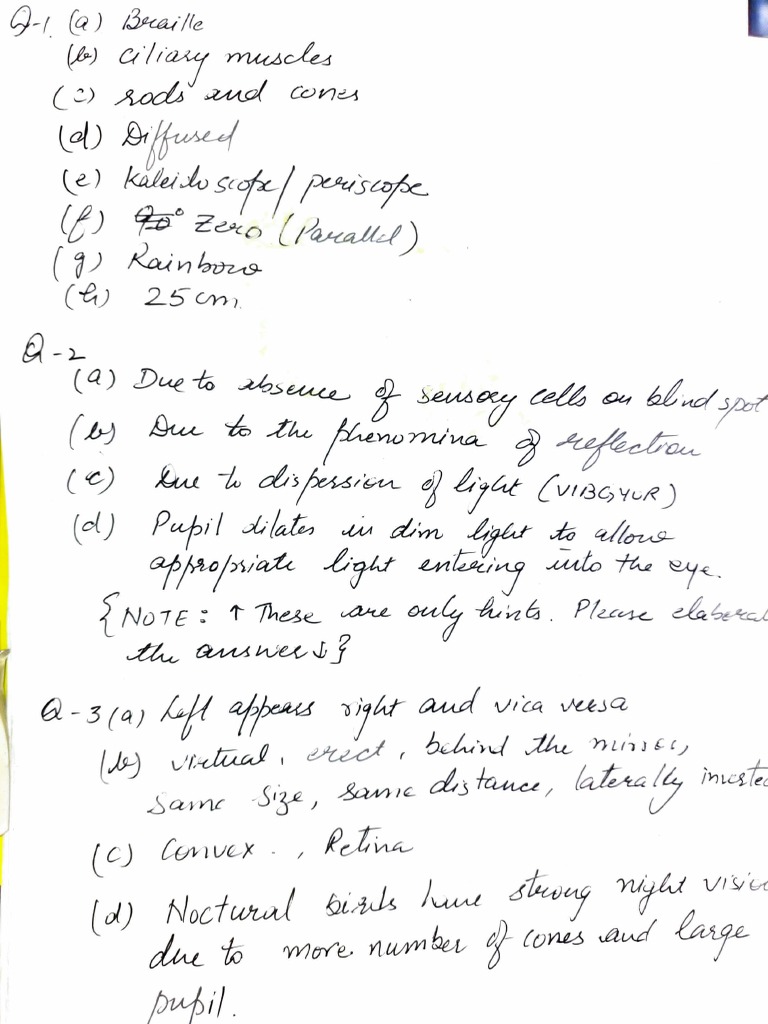 Q-1. (a) Braille
(b) ciliary muscles
(c) rods and cones
(d) Diffused
(e) Kaleidoscope/ periscope
(f) 90° Zero (Parallel)
(g) Rainbow
(h) 25 cm.
Q-2
(a) Due to absence of sensory cells on blind spot
(b) Due to the phenomina of reflection
(c) Due to dispersion of light (VIBGYOR)
(d) Pupil dilates in dim light to allow
appropriate light entering into the eye.
{NOTE: ↑ These are only hints. Please elaborat
the answer ↓}
Q-3 (a) Left appears right and vica versa
(b) virtual, erect, behind the mirror,
same size, same distance, laterally inverte
(c) Convex., Retina
(d) Noctural birds have strong night visio
due to more number of cones and large
pupil.